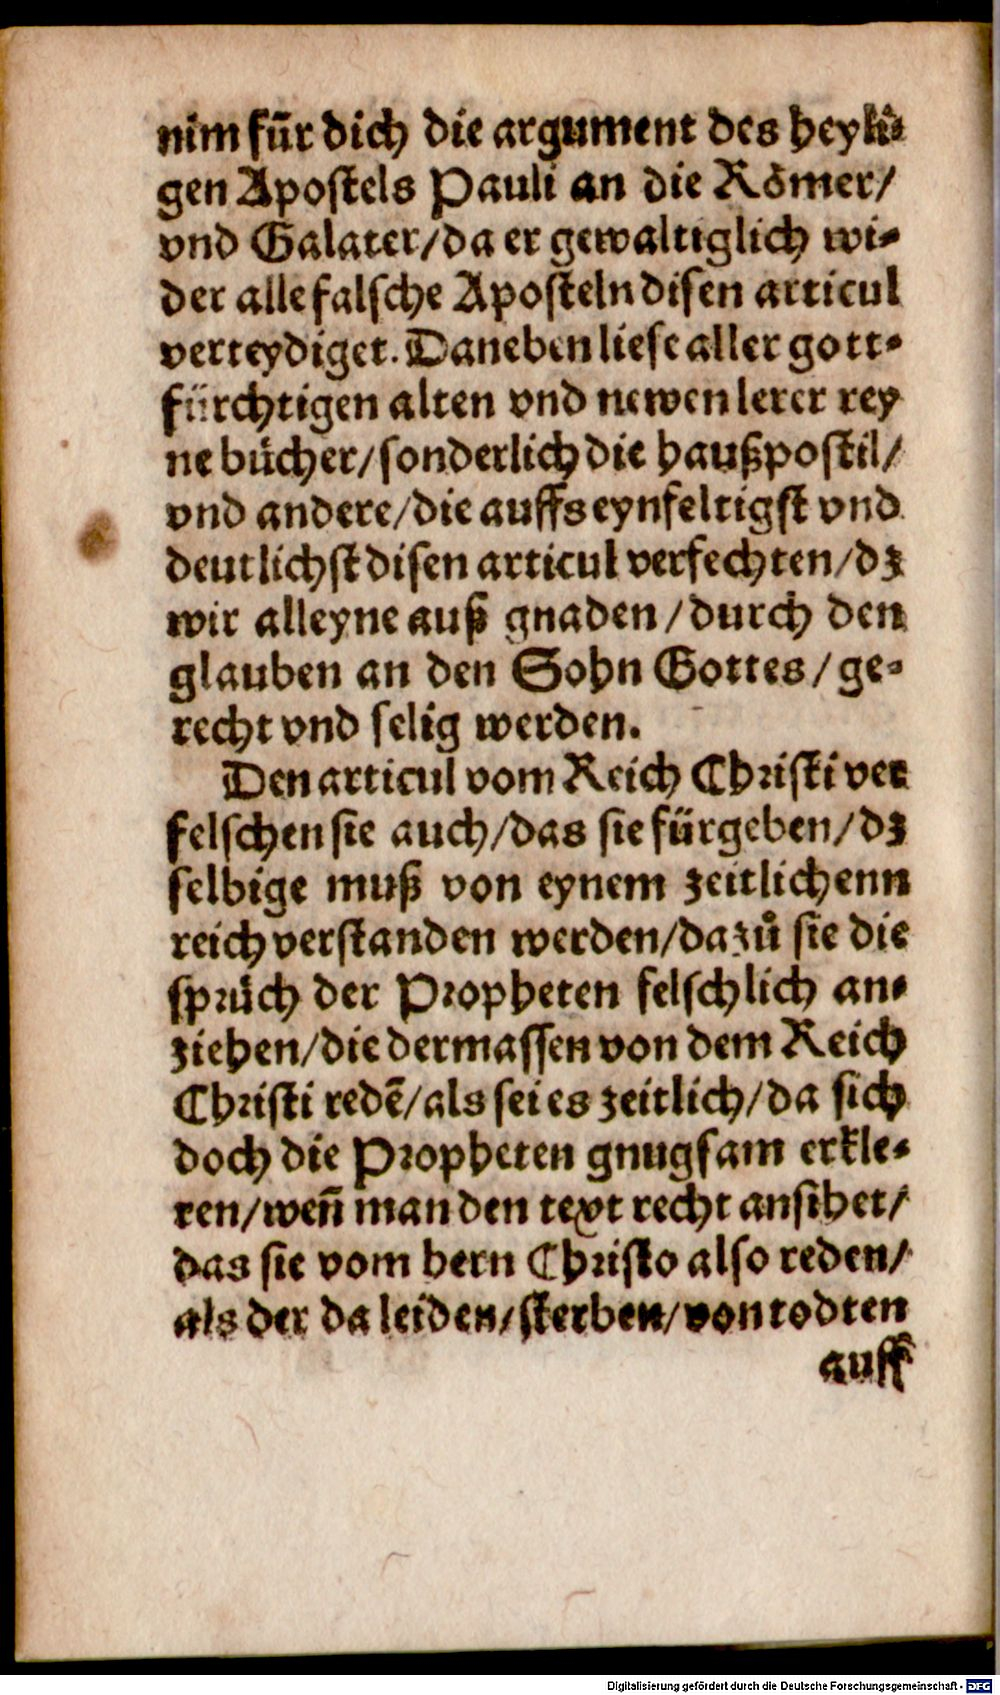 nim für dich die argument des heyli-
gen Apostels Pauli an die Römer/
vnd Galater/da er gewaltiglich wi-
der alle falsche Aposteln disen articul
verteydiget. Daneben liese aller gott-
fürchtigen alten vnd newen lerer rey
ne bücher/sonderlich die haußpostil/
vnd andere/die auffs eynfeltigst vnd
deutlichst disen articul verfechten/dz
wir alleyne auß gnaden/durch den
glauben an den Sohn Gottes/ge-
recht vnd selig werden.
Den articul vom Reich Christi ver
felschen sie auch/das sie fürgeben/dz
selbige muß von eynem zeitlichenn
reich verstanden werden/dazů sie die
sprüch der Propheten felschlich an-
ziehen/die dermassen von dem Reich
Christi redē/als sei es zeitlich/da sich
doch die Propheten gnugsam erkle-
ren/weñ man den text recht ansihet/
das sie vom hern Christo also reden/
als der da leiden/sterben/von todten
auff
Digitalisierung gefördert durch die Deutsche Forschungsgemeinschaft - DFG